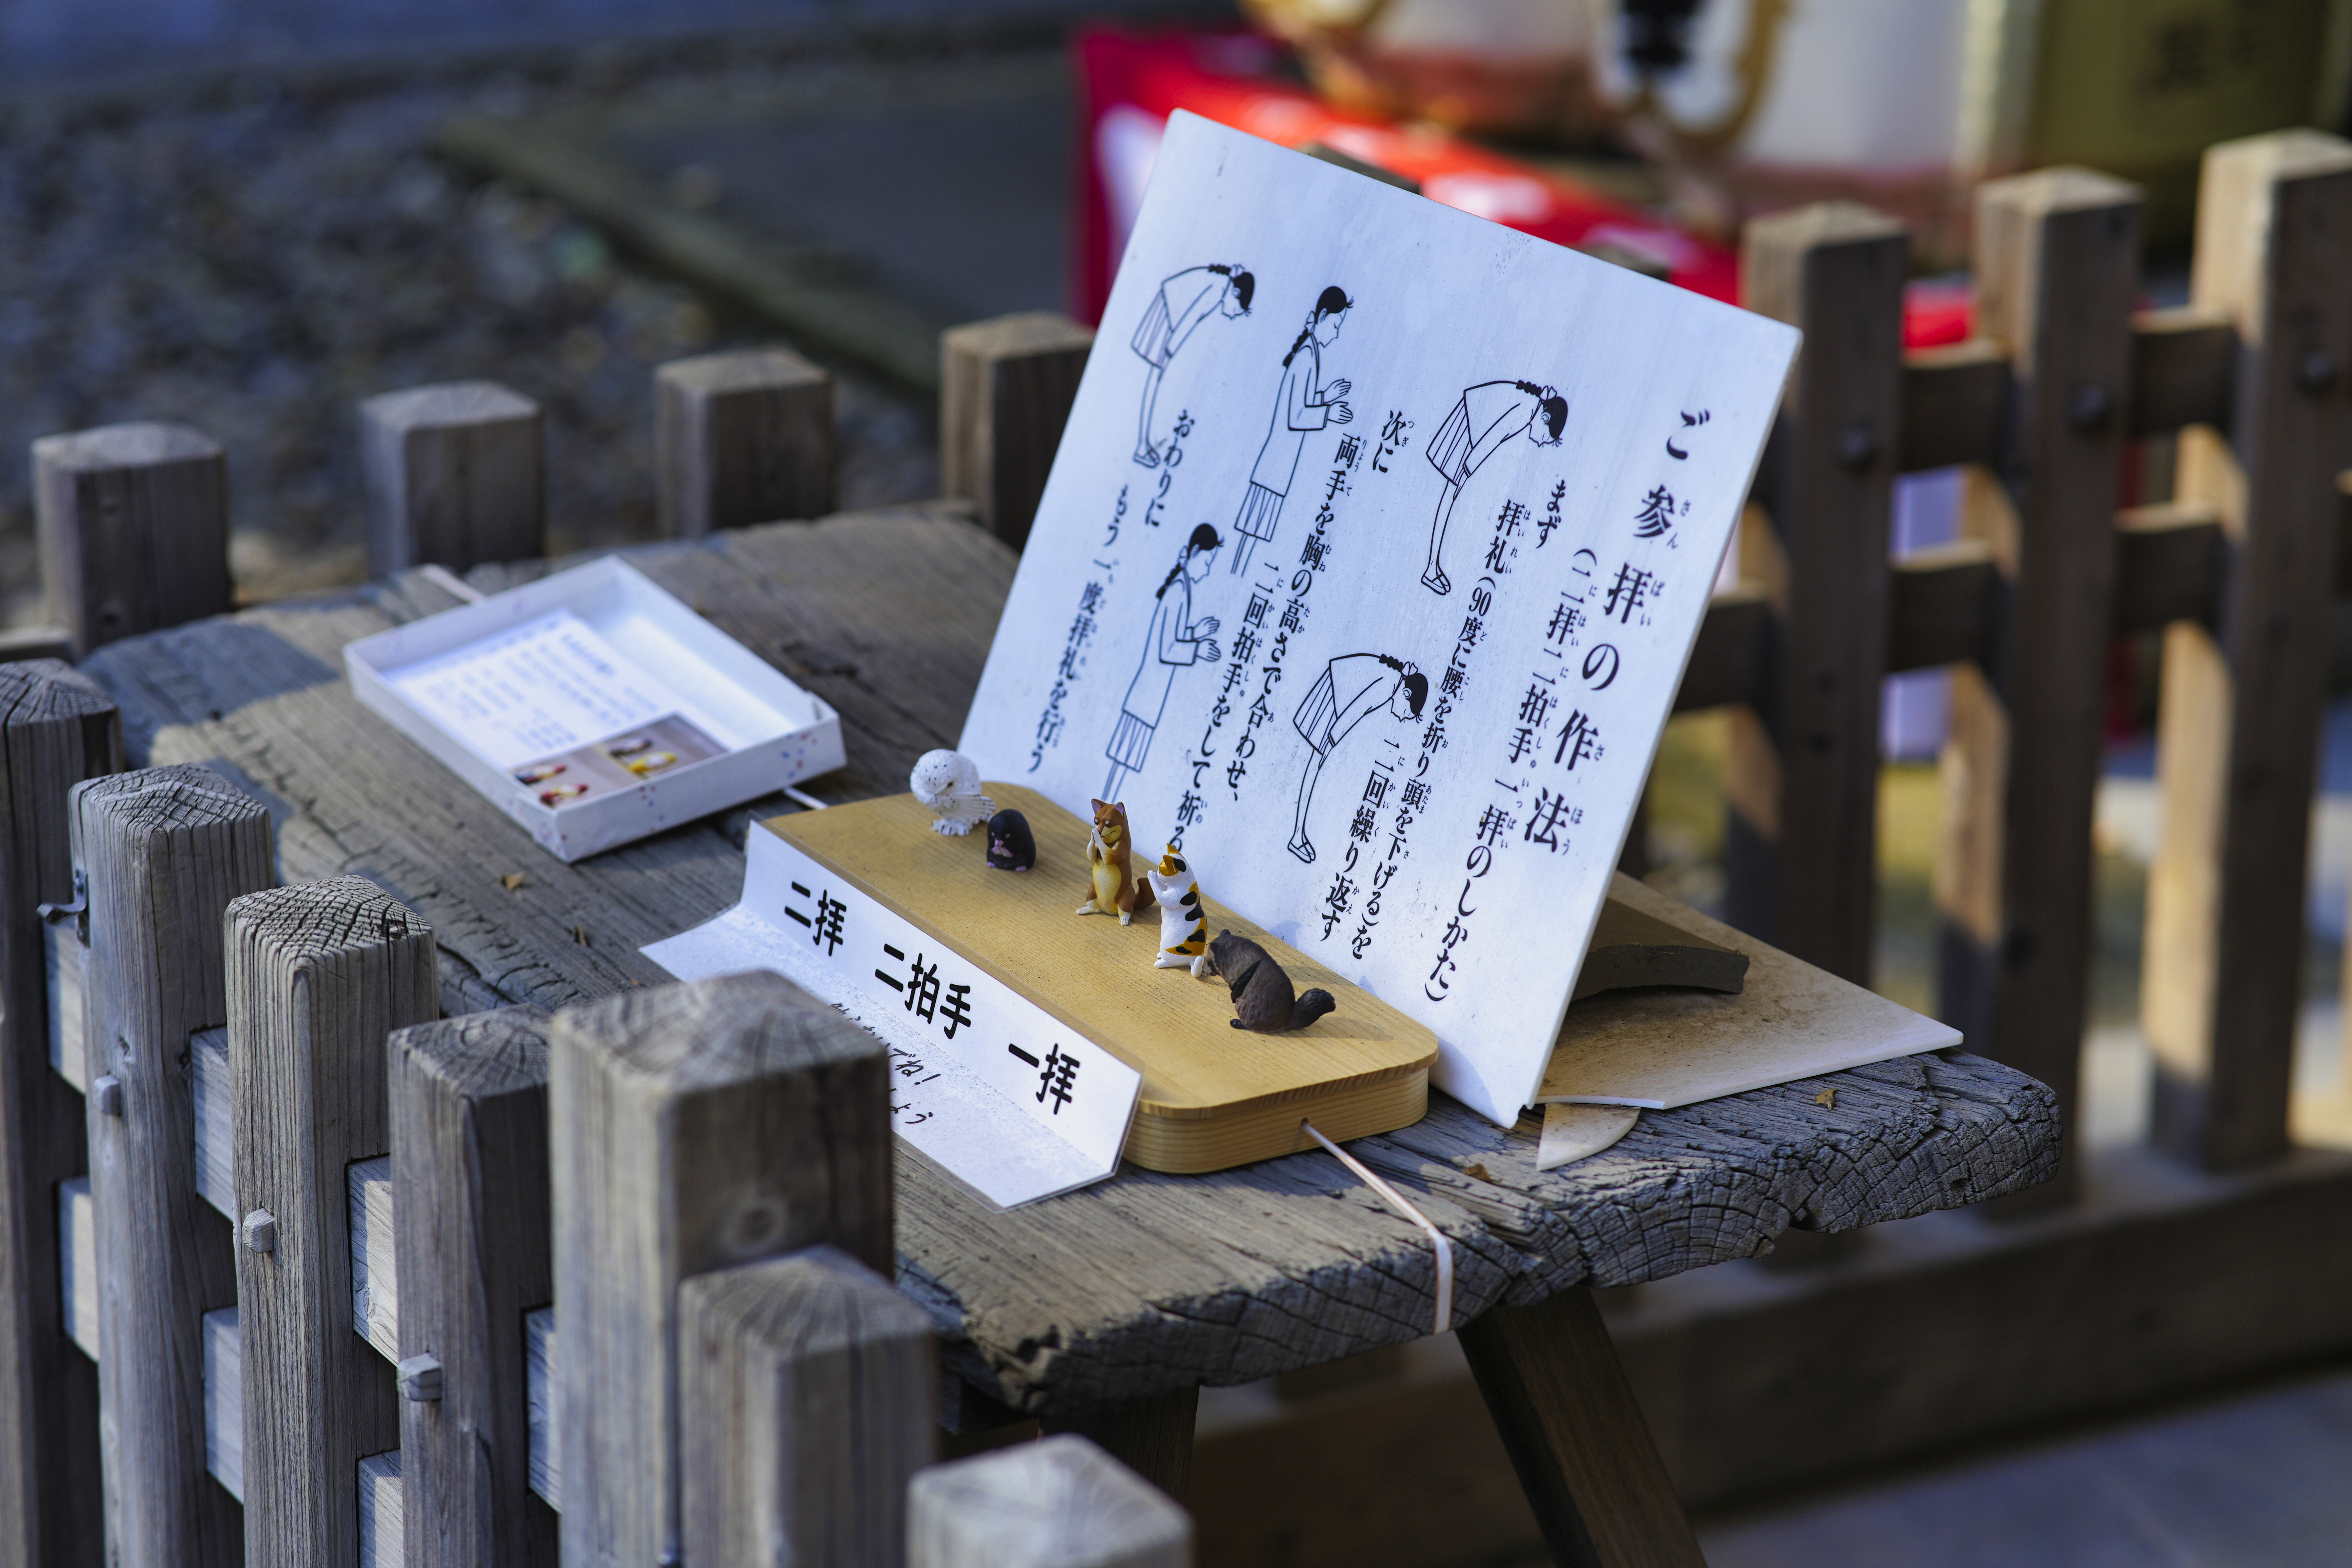 ご参拝の作法
(二拝二拍手一拝のしかた)
まず
拝礼(90度に腰を折り頭を下げる)を
二回繰り返す
次に
両手を胸の高さで合わせ、
二回拍手をして祈る
おわりに
もう一度拝礼を行う
二拝 二拍手 一拝